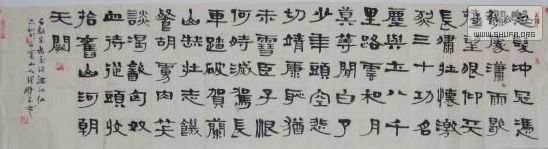 怒髮衝冠馮
闌處瀟雨歇
擡望眼仰天
長嘯壯懷激
烈三十功名
塵與土八千
里路雲和月
莫等閒白了
少年頭空悲
切靖康恥猶
未雪臣子恨
何時滅駕長
車踏破賀蘭
餐胡虜肉笑
談渴飲匈奴
血待從頭收
拾舊山河朝
天闕
岳飛詞滿江紅
WWW.SHUFA.ORG